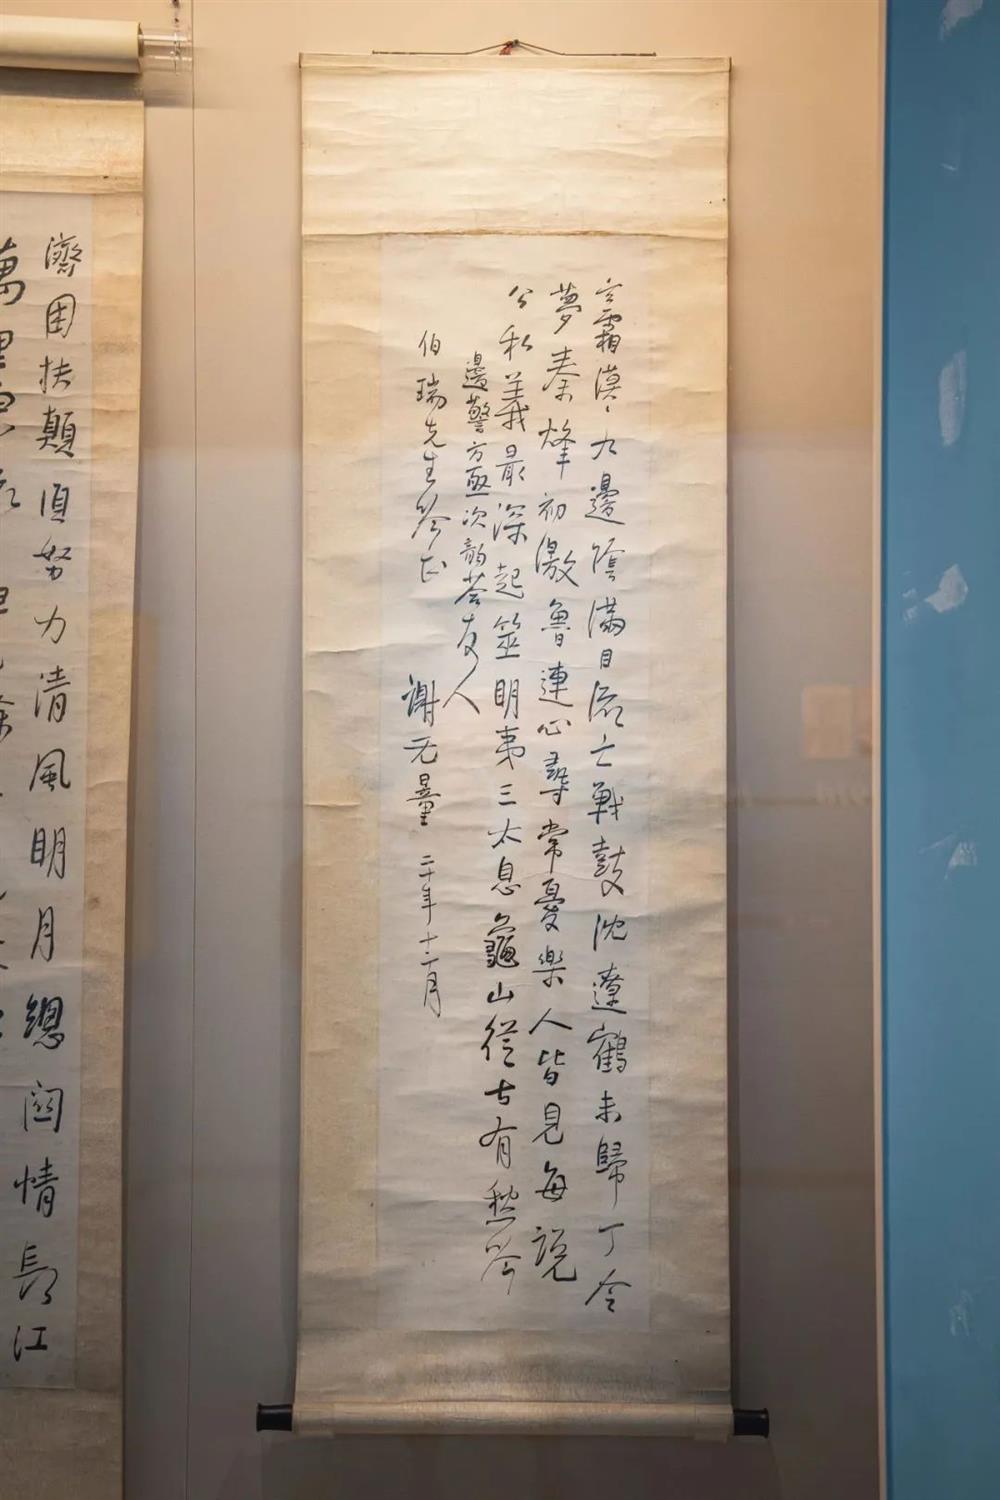 霜漠〻九邊陰滿目流亡戰鼓沈遼鶴未歸丁令
夢秦烽初激魯連心尋常憂樂人皆見每說
公私義最深起筮明夷三太息龜山從古有愁吟
邊警方亟次韵答友人
伯瑞先生吟正
謝无量 二十年十二月
濟困扶顛須努力清風明月總関情長江
萬里